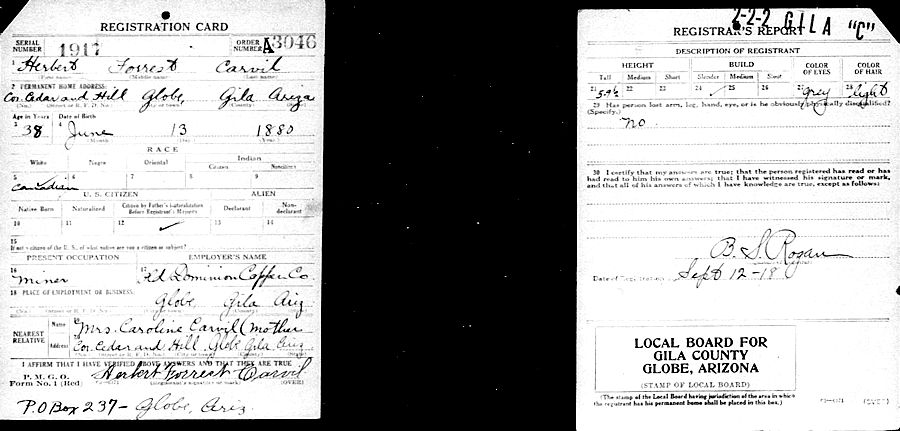 REGISTRATION CARD
SERIAL NUMBER 1917 ORDER NUMBER A3046
1 Herbert Forrest Carvil
(First name) (Middle name) (Last name)
2 PERMANENT HOME ADDRESS:
Cor. Cedar and Hill Globe, Gila Ariza
Age in Years Date of Birth
3 38 4 June 13 1880
(Month) (Day) (Year)
RACE
White Negro Oriental Indian
Citizen Noncitizen
5 6 7 8 9
Canadian
U. S. CITIZEN ALIEN
Native Born Naturalized Citizen by Father's Naturalization Before Registrant's Majority Declarant Non-declarant
10 11 12 ✓ 13 14
15
If not a citizen of the U. S., of what nation are you a citizen or subject?
PRESENT OCCUPATION EMPLOYER'S NAME
16 Miner 17 Old Dominion Copper Co
18 PLACE OF EMPLOYMENT OR BUSINESS:
Globe, Gila Ariz
NEAREST RELATIVE
Name 19 Mrs. Caroline Carvil (Mother
Address 20 Cor. Cedar and Hill Globe Gila Ariz.
I AFFIRM THAT I HAVE VERIFIED ABOVE ANSWERS AND THAT THEY ARE TRUE
P. M. G. O.
Form No. 1 (Red) Herbert Forrest Carvil
(Registrant's signature or mark) (OVER)
P.O Box 237 - Globe, Ariz.
2-2-2 GILA "C"
REGISTRAR'S REPORT
DESCRIPTION OF REGISTRANT
HEIGHT BUILD COLOR OF EYES COLOR OF HAIR
Tall Medium Short Slender Medium Stout
21 5-9½ 22 23 24 ✓ 25 26 27 grey 28 light
29 Has person lost arm, leg, hand, eye, or is he obviously physically disqualified?
(Specify.)
no
30 I certify that my answers are true; that the person registered has read or has
had read to him his own answers; that I have witnessed his signature or mark,
and that all of his answers of which I have knowledge are true, except as follows:
B. S. Rogan
Date of Registration Sept 12-18
LOCAL BOARD FOR
GILA COUNTY
GLOBE, ARIZONA
(STAMP OF LOCAL BOARD)
(The stamp of the Local Board having jurisdiction of the area in which
the registrant has his permanent home shall be placed in this box.)
(OVER)